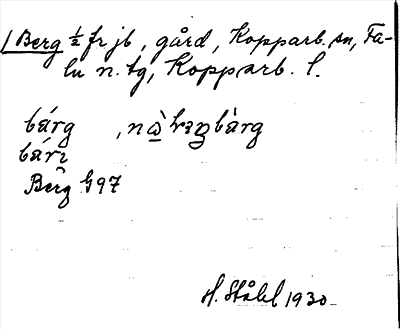 1 Berg ½ fr jb, gård, Kopparb. sn, Fa-
lu n. tg, Kopparb. l.
bárg , nὰkrɪŋbàrg
bárɪ
Berg G97
H. Ståhl 1930